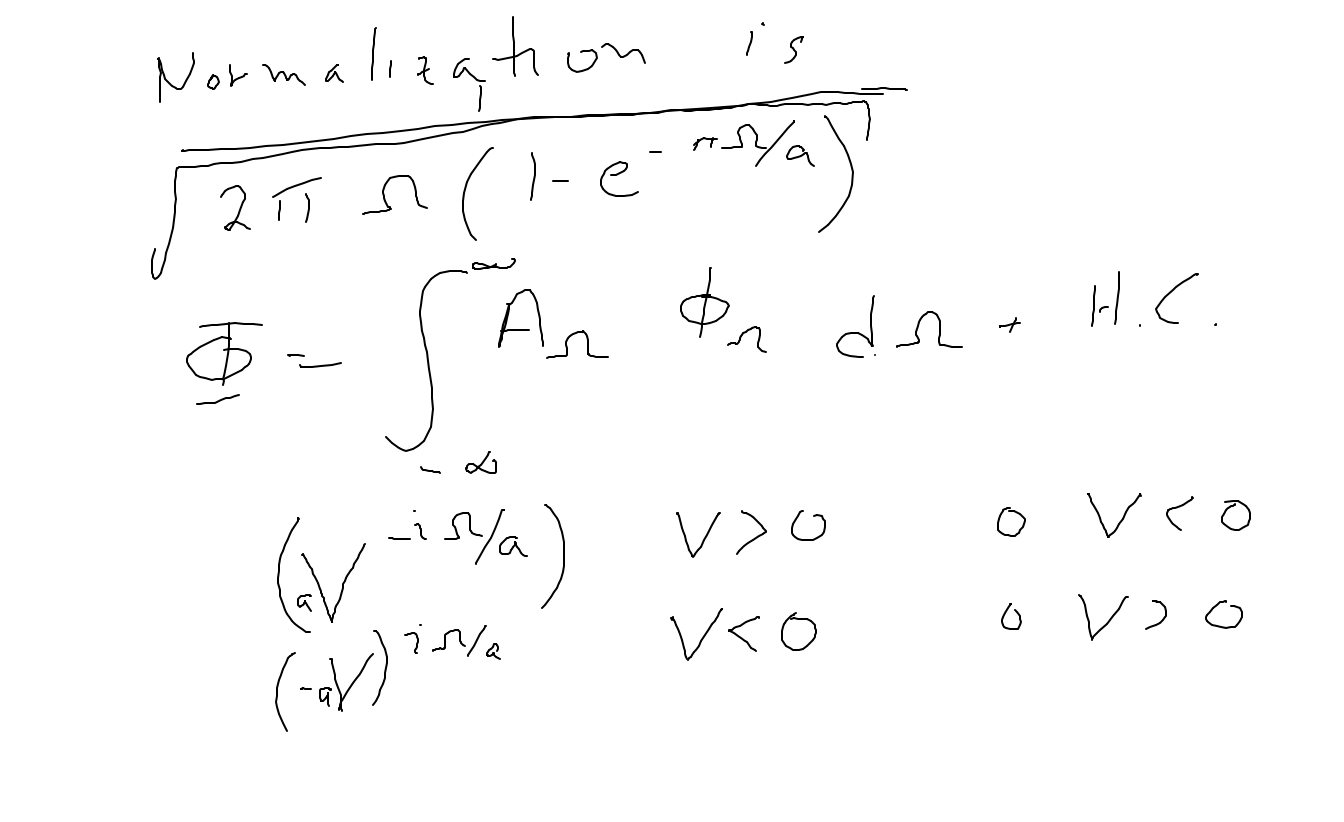 Normalization is
√(2π Ω (1 - e^(-πΩ/a)))
Φ = ∫_{-∞}^{∞} A_Ω ϕ_Ω dΩ + H.C.
(aV^(-iΩ/a)) V > 0 0 V < 0
(-aV)^(iΩ/a) V < 0 0 V > 0